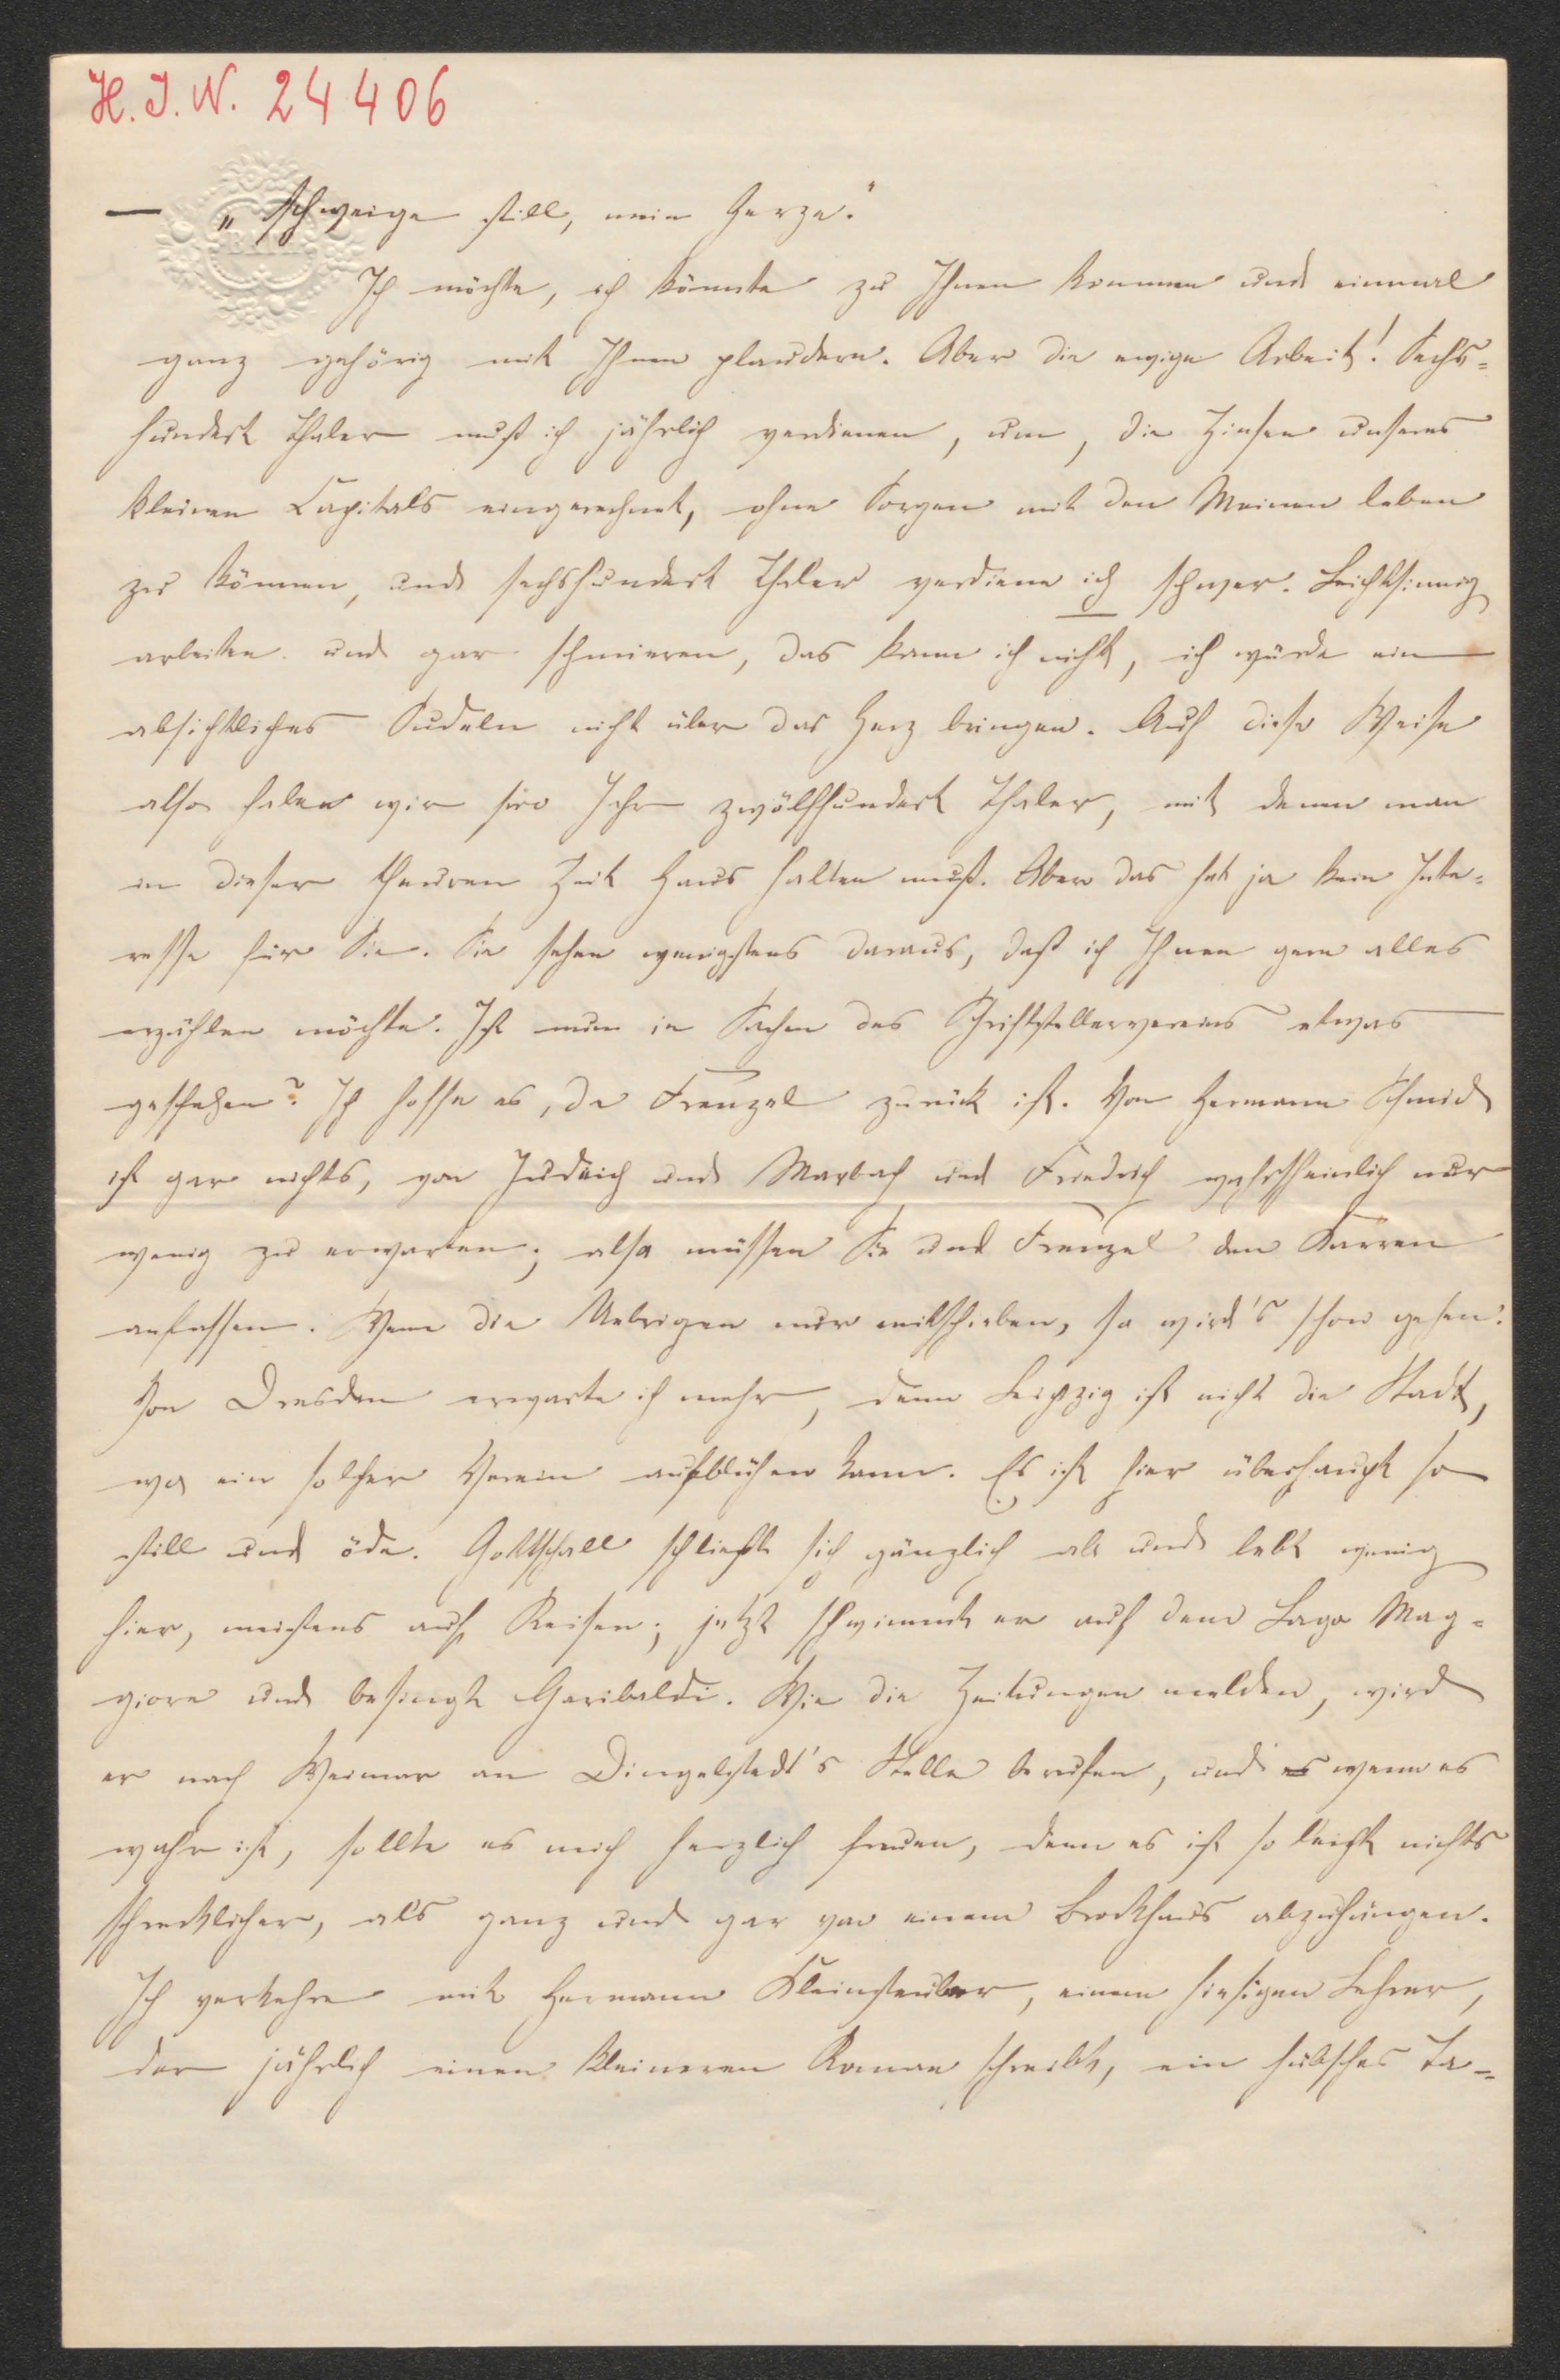 H. I. N. 24406
— „Schweige still, mein Herze."
Ich möchte, ich könnte zu Ihnen kommen und einmal
ganz gehörig mit Ihnen plaudern. Aber die ewige Arbeit! Sechs-
hundert Thaler muß ich jährlich verdienen, um, die Zinsen unseres
kleinen Capitals eingerechnet, ohne Sorgen mit den Meinen leben
zu können, und sechshundert Thaler verdiene ich schwer. Leichtsinnig
arbeiten und gar schmieren, das kann ich nicht, ich würde ein
absichtliches Sudeln nicht über das Herz bringen. Auf diese Weise
also haben wir pro Jahr zwölfhundert Thaler, mit denen man
in dieser theuren Zeit Haus halten muß. Aber das hat ja kein Inte-
resse für Sie. Sie sehen wenigstens daraus, daß ich Ihnen gern alles
erzählen möchte. Ist nun in Sachen des Schriftstellervereins etwas
geschehen? Ich hoffe es, da Frenzel zurück ist. Von Hermann Schmid
ist gar nichts, von Judeich und Marbach und Friedrich wahrscheinlich nur
wenig zu erwarten; also müssen Sie und Frenzel den Karren
anfassen. Wenn die Uebrigen nur mitschieben, so wird's schon gehen.
Von Dresden erwarte ich mehr, denn Leipzig ist nicht die Stadt,
wo ein solcher Verein aufblühen kann. Es ist hier überhaupt so
still und öde. Gottschall schließt sich gänzlich ab und lebt wenig
hier, meistens auf Reisen; jetzt schwimmt er auf dem Lago Mag-
giore und besingt Garibaldi. Wie die Zeitungen melden, wird
er nach Weimar an Dingelstedt's Stelle berufen, und es wenn es
wahr ist, sollte es mich herzlich freuen, denn es ist so leicht nichts
schrecklicher, als ganz und gar von einem Brockhaus abzuhängen.
Ich verkehre mit Hermann Kleinsteuber, einem hiesigen Lehrer,
der jährlich einen kleineren Roman schreibt, ein hübsches Ta-